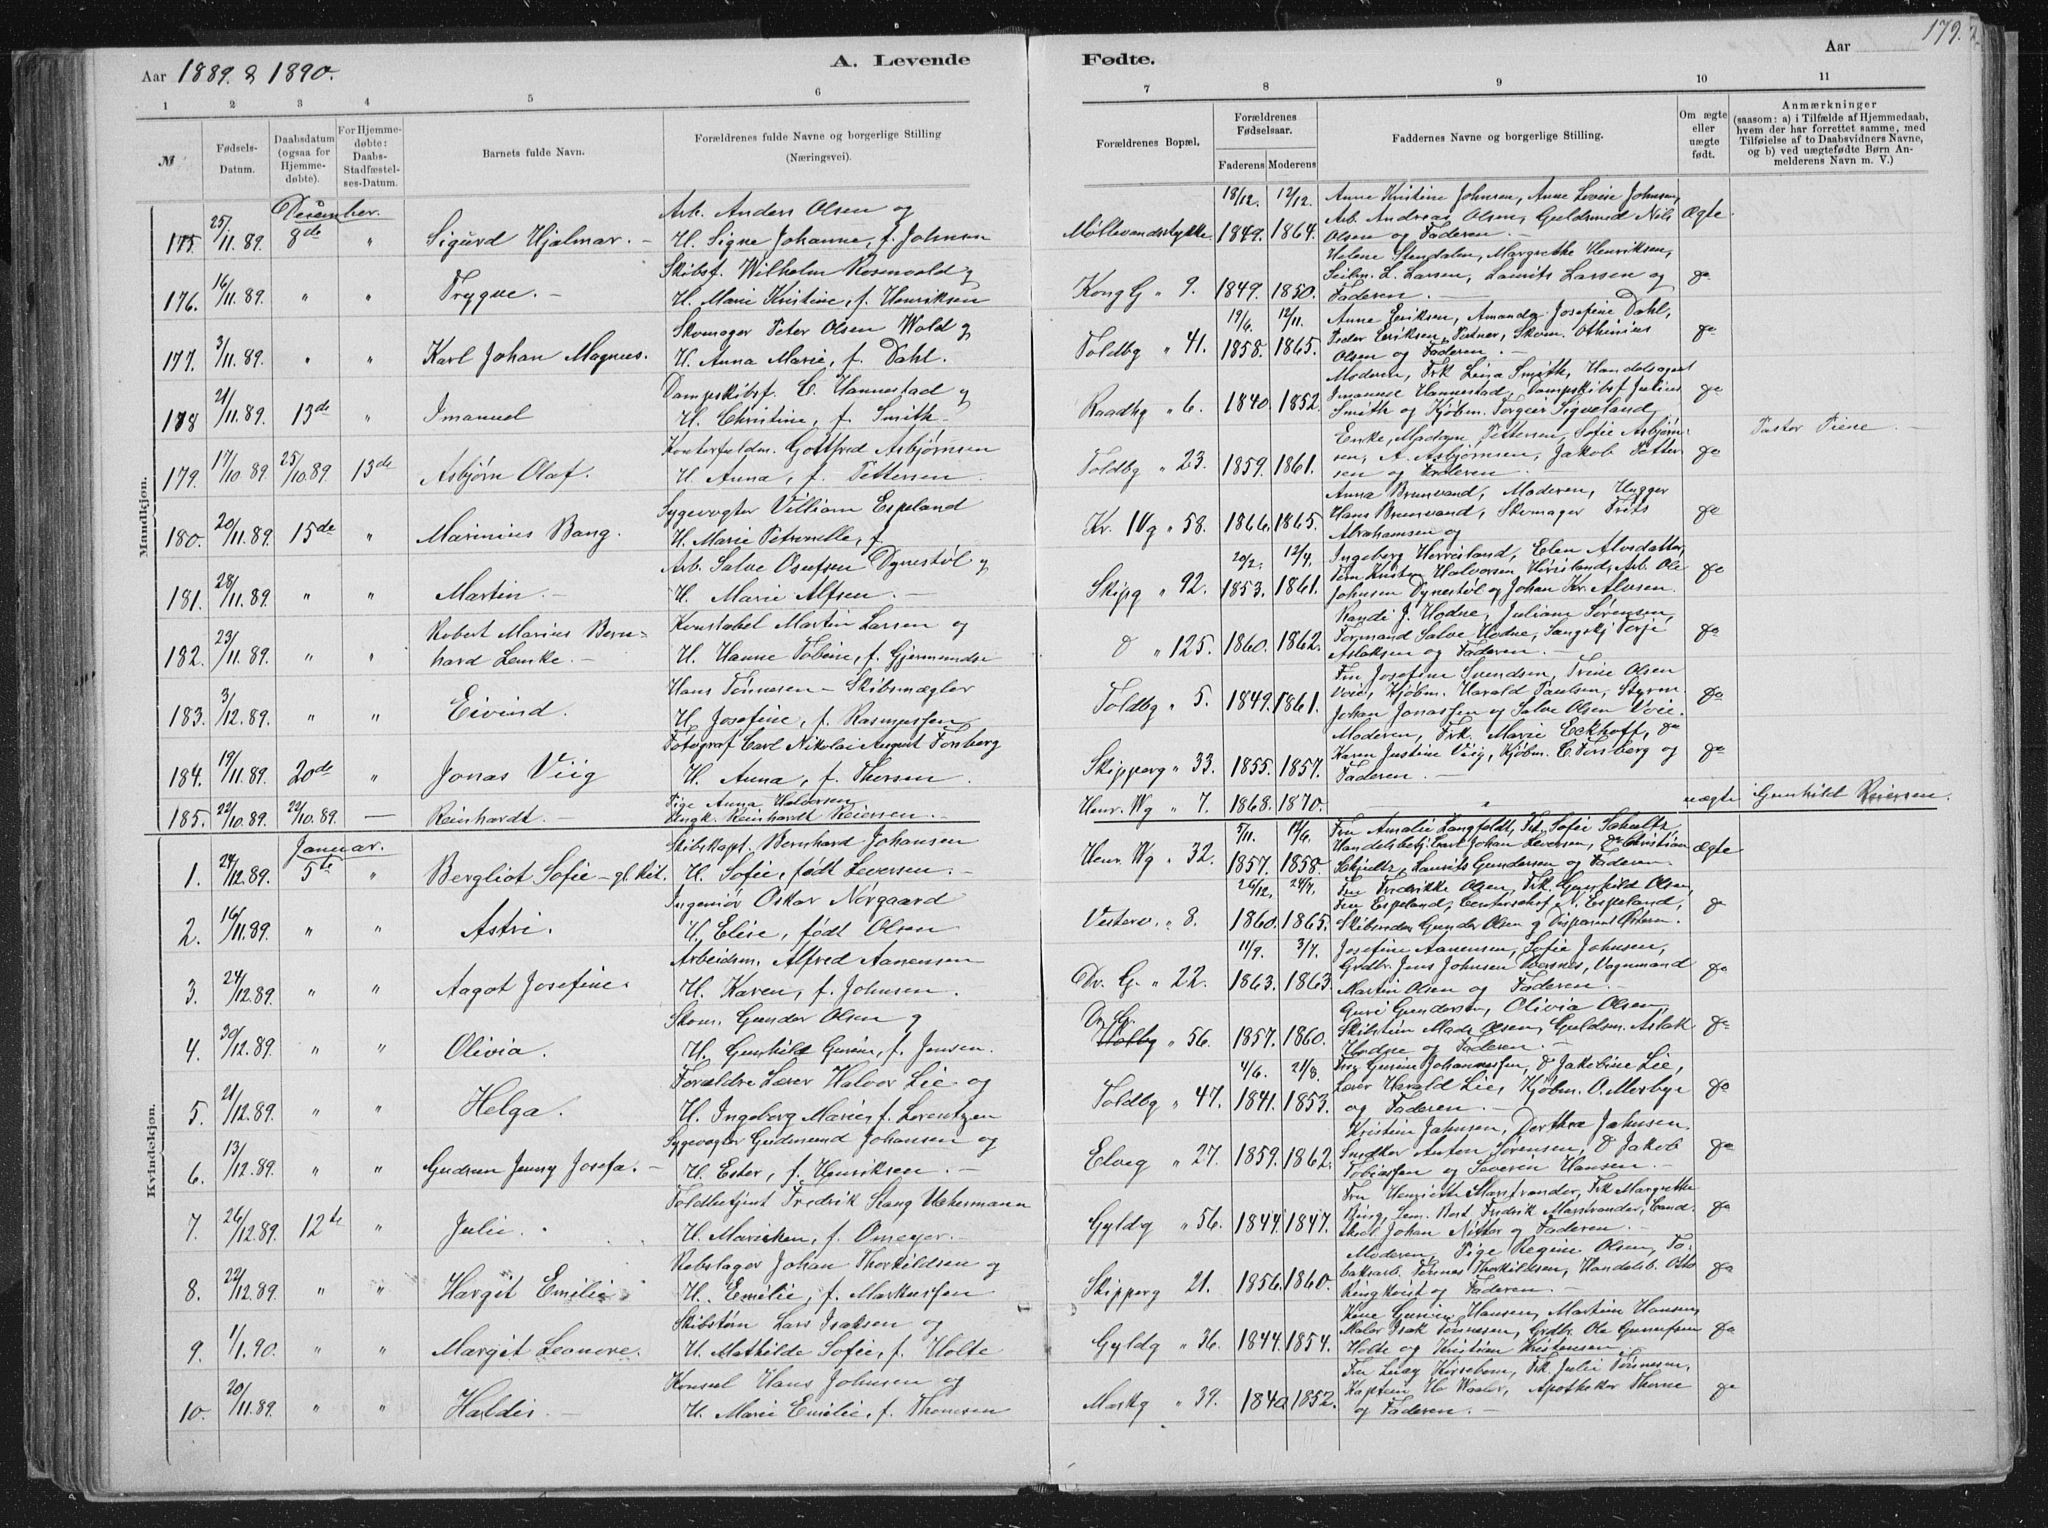 179.
Aar 1889. & 1890.
A. Levende
Fødte.
Aar
1 2 3 4 5 6
7 8 9 10 11
№
Fødsels-Datum.
Daabsdatum (ogsaa for Hjemme-døbte).
For Hjemme-døbte: Daabs-Stadfæstel-ses-Datum.
Barnets fulde Navn.
Forældrenes fulde Navne og borgerlige Stilling
(Næringsvei).
Forældrenes Bopæl.
Forældrenes Fødselsaar.
Faderens Moderens
Faddernes Navne og borgerlige Stilling.
Om ægte eller uægte født.
Anmærkninger
(saasom: a) i Tilfælde af Hjemmedaab,
hvem der har forrettet samme, med
Tilføielse af to Daabsvidners Navne,
og b) ved uægtefødte Børn An-
melderens Navn m. V.)
Mandkjøn.
December.
Arb. Anders Olsen og
18/12. 12/12. Anne Kristine Johnsen, Anne Lovise Johnsen,
175. 25/11.89. 8de " Sigurd Hjalmar. – H. Signe Johanne, f. Johnsen
Møllevandsstykke 1849. 1864. Arb. Andreas Olsen, Guldsmed Nils Olsen og Faderen. – ægte
Skibsf. Wilhelm Rosenvold og
Helene Stendalen, Margrethe Henriksen,
176. 16/11.89. " " Trygve. – H. Marie Kristine, f. Henriksen
Kong G " 9. 1849. 1850. Seilm. L. Larsen, Laurits Larsen og Faderen. – do
Skomager Peter Olsen Wold og
19/6. 12/11. Anne Eriksen, Amanda Josefine Dahl,
177. 3/11.89. " " Karl Johan Magnus. H. Anna Marie, f. Dahl.
Toldbg " 41. 1858. 1865. Peder Eriksen, Skom. Othinius Olsen og Faderen. – do
Dampskibsf. C. Hannestad og
Moderen, Frk Lina Smith, Handelsagent
178 21/11.89. 13de " Imanuel H. Christine, f. Smith.
Raadhg " 6. 1840. 1852. Imanuel Hannestad, Dampskibsf. Julius Smith og Kjøbm. Torgeir Sigveland do
Kontorfuldm. Gottfred Asbjørnsen
Enke, Madam Pettersen, Sofie Asbjørn-
179. 17/10.89. 25/10.89. 13de Asbjørn Olaf. H. Anna, f. Pettersen
Toldbg " 23. 1859. 1861. sen, A. Asbjørnsen, Jakob Petter-sen og Faderen. do Pastor Piene. –
Sygevogter Villiam Espeland
Anna Brunvand, Moderen, Hugger
180. 20/11.89. 15de " Marinius Bang. H. Marie Petronelle, f.
Kr. IVg " 58. 1866. 1865. Hans Brunvand, Skomager Frits Abrahamsen og do
Arb. Salve Osufsen Dynestøl og
20/2. 12/4. Ingeborg Herrisland, Elen Alvsdatter,
181. 28/11.89. " " Martin. – H. Marie Alfsen. –
Skipg " 92. 1853. 1861. Halvorsen Herisland, Arb. Ole Johnsen Dynestøl og Johan Kr. Alvsen. do
Robert Marius Bern- Konstabel Martin Larsen og
Randi J. Hodne, Juliane Sørensen,
182. 23/11.89. " " hard Lemke. – H. Hanne Tobine, f. Gjermundsen
D " 125. 1860. 1862. Formand Salve Hodne, Terje Aslaksen og Faderen. – do
Hans Tønnesen – Skibsmægler
Fru Josefine Svendsen, Trine Olsen
183. 3/12.89. " " Eivind. H. Josefine, f. Rasmussen
Toldbg " 5. 1849. 1861. Voie, Kjøbm. Harald Paulsen, Styrm. Johan Jonassen og Salve Olsen Voie. do
Fotograf Carl Nikolai August Forsberg
Moderen, Frk. Marie Eckhoff, do
184. 19/11.89. 20de " Jonas Viig H. Anna, f. Thorsen.
Skipperg " 33. 1855. 1857. Karen Justine Viig, Kjøbm. C. Forsberg og Faderen. – do
Pige Anna Halvorsen
185. 22/10.89. 22/10.89. — Reinhardt. – Ungk. Reinhardt Reiersen. –
Henr. Wg " 7. 1868. 1870. " uægte Gunhild Reiersen.
Kvindekjøn.
Januar.
Skibskapt. Bernhard Johansen
5/11. 14/6. Fru Amalie Langfeldt, Frk. Sofie Schultz
1. 24/12.89. 5te " Bergliot Sofie – H. Sofie, født Leversen. –
Henr. Wg " 32. 1857. 1858. Handelsbetj. Carl Johan Leversen, Christian Schjultz, Laurits Gundersen og Faderen. ægte
Ingeniør Oskar Nørgaard
26/12. 24/7. Fru Fredrikke Olsen, Frk. Gunhild Olsen,
2. 16/11.89. " " Astri. H. Elise, født Olsen
Vesterv. " 8. 1860. 1865. Fru Espeland, N. Espeland, Skibsreder Gunder Olsen og do
Arbeidsm. Alfred Aanensen
11/9. 3/7. Josefine Aanensen, Sofie Johnsen,
3. 24/12.89. " " Aagot Josefine. H. Karen, f. Johnsen.
Dr. G. " 22. 1863. 1863. Grdbr. Jens Johnsen, Vognmand Martin Olsen og Faderen. – do
Skom. Gunder Olsen og
Guri Gundersen, Olivia Olsen,
4. 30/12.89. " " Olivia. H. Gunhild Gurine, f. Jensen.
Dr. Gr. 56. 1857. 1860. Mads Olsen, Guldsm. Aslak Hodne og Faderen. – do
Forældre Lærer Halvor Lie og
4/6. 21/8. Gurine Johannessen, D Jakobine Lie,
5. 21/12.89. " " Helga. H. Ingeborg Marie, f. Lorentzen
Toldbg " 47. 1841. 1853. Lærer Harald Lie, Kjøbm. O. Mosbye og Faderen. – do
Sygevogter Gudmund Johansen og
Kristine Jahnsen, Dorthea Jahnsen
6. 13/12.89. " " Gudrun Jenny Josefa. – H. Ester, f. Henriksen. –
Elveg " 27. 1859. 1862. Snedker Anton Sørensen, D Jakob Tobiassen og Severin Hansen. – do
Toldbetjent Fredrik Stang Uckermann
Fru Henriette Marstrander, Frk Margrethe
7. 26/12.89. 12te " Julie. H. Mariken, f. Omeyer.
Gyldg " 56. 1844. 1847. Bing, Fredrik Marstrander, Cand. Johan Nitter og Faderen. – do
Rebslager Johan Thorkildsen og
Moderen, Pige Regine Olsen, To-
8. 22/12.89. " " Hargit Emilie H. Emilie, f. Markussen
Skipperg 21. 1856. 1860. baksarb. Tønnes Thorkildsen, Handelsb. Otto Ringkvist og Faderen. – do
Skibstøm. Lars Isaksen og
Gurine Hansen, Martine Hansen,
9. 1/1.90. " " Margit Leonore. H. Mathilde Sofie, f. Holte
Gyldg " 36. 1844. 1854. Maler Isak Tønnesen, Grdbr. Ole Gunnufsen Holte og Kristian Kristensen do
Konsul Hans Johnsen og
Fru Kirsebom, Frk. Julie Tønnesen,
10. 20/11.89. " " Haldis. – H. Marie Emilie, f. Thomsen
Markg " 39. 1840. 1852. Kaptein Waaler, Apotheker Thorne og Faderen. – do